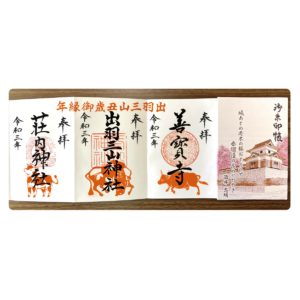 出羽三山丑歳御縁年
御朱印帳
奉拝
善寳寺
令和三年
奉拝
出羽三山神社
令和三年
奉拝
荘内神社
令和三年